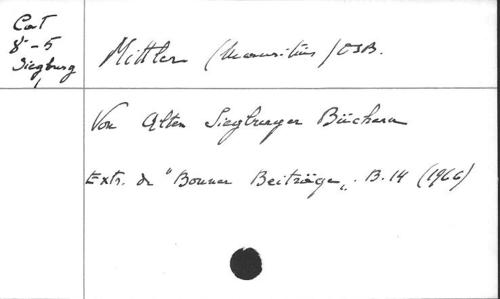 Cat
8° - 5
Siegburg
Mittler (Mauritius) OSB.
Von Alten Siegburger Büchern
Extr. de "Bonner Beiträge„. B. 14 (1966)